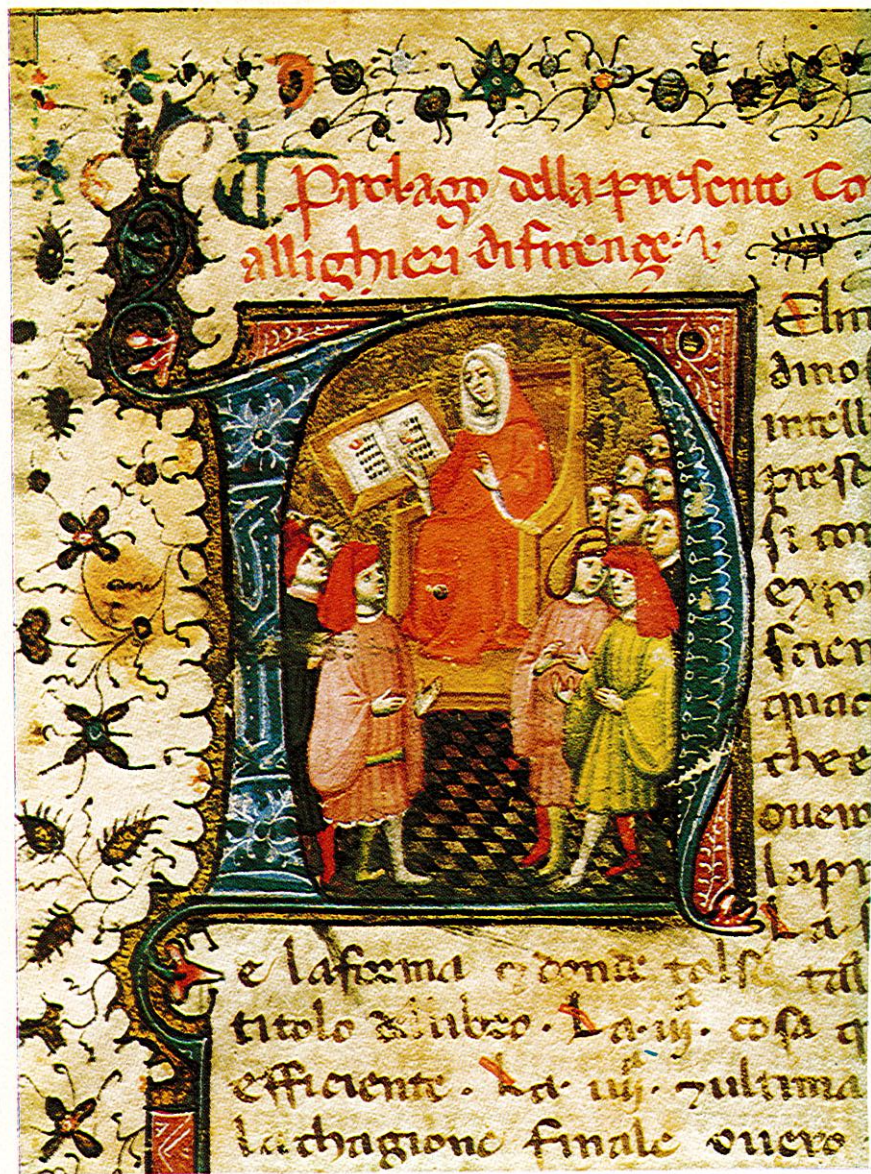 Prolago della presente Co
allighieri di firençe· v
N
Elm
dino
intell
prese
si com
expo
scien
quac
che e
ouero
la pr
La s
e la forma ⁊ donde tolse tal
titolo del libro · La · iijª · cosa q
efficiente · La · iiijª · ⁊ ultima
la chagione finale ouero